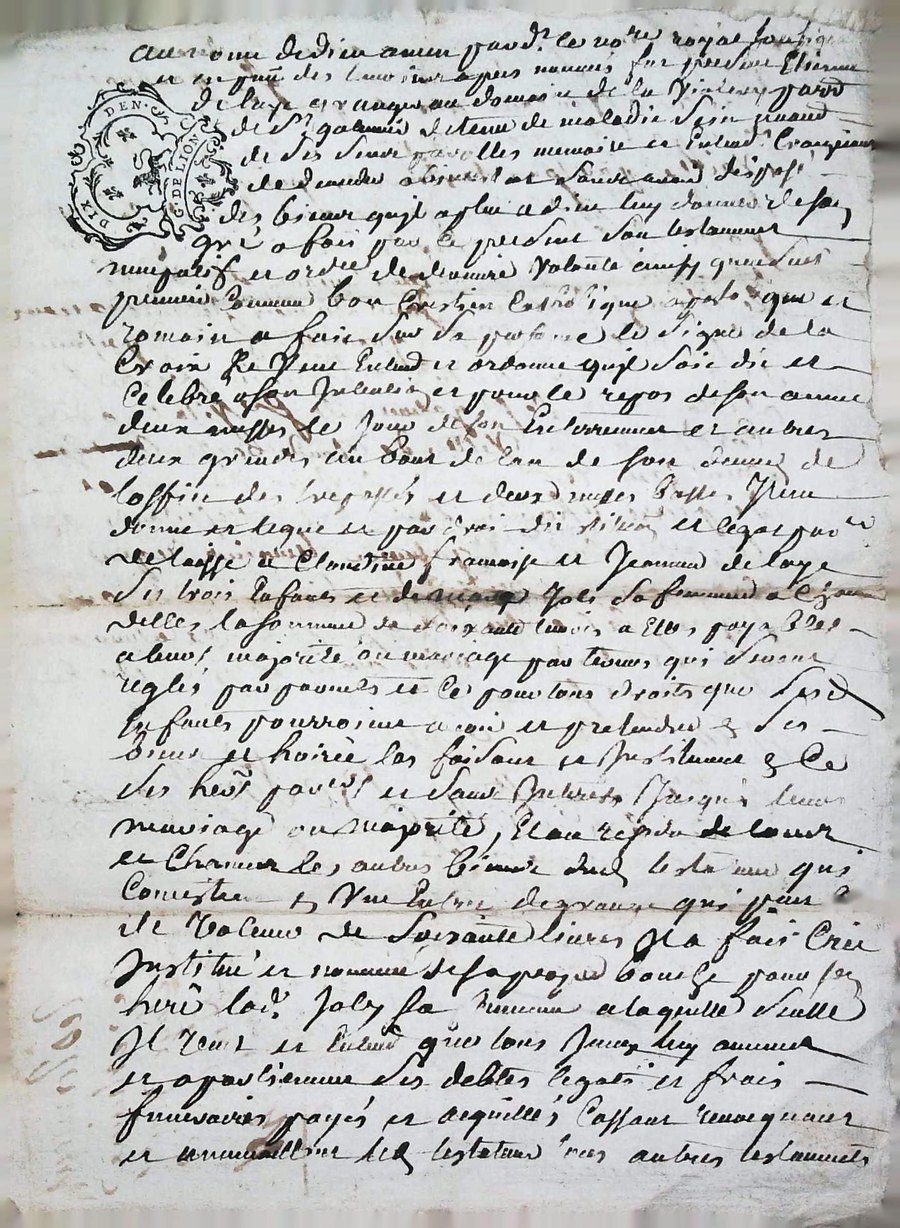 au nom de dieu amen pard.t le no.re royal soussigné
et en pnce des temoins apres nommes fut present Etienne
delage granger au domaine de la parr
de S.t galmier detenu de maladie sain neand
de ses sens parolles memoire et Entend.t Craignant
de deceder abintestat sans avoir disposé
des biens quil a plu a dieu luy donner de son
gré a fait par le present son testament
nuncupatif et ordre de derniere volonté ainsy que suit
premier Comme bon Crestien Catholique apostolique et
romain a fait sur sa personne le signe de la
Croix Veut Entend et ordonne quil soit dit et
Celebré a son Intention et pour le repos de son ame
deux messes le Jour de son Enterrement et autres
deux grandes au bout de l'an de son deces de
loffice des trepassés et deux messes basses Item
donne et legue et par droit din et legat par.er
delaisse a Claudine francoise et Jeanne delage
ses trois Enfants et de Joly sa femme a chacune
delles la somme de soixante livres a Elles payables
a leurs majorité ou mariage par termes qui seront
reglés par parents et Ce pour tous droits que sesd
Enfants pourroient avoir et pretendre En ses
biens et hoirie les faisant et Instituant En Ce
ses her.s par.ers et sans Interets Jusques leurs
mariage ou majorité, Et au residu de tous
et Chacuns les autres biens dud testateur qui
Consistent En Une de grange qui peut
de Valeur de soixante livres Il a fait Créé
Institué et nommé de sa propre bouche pour son
here lad. Joly sa femme a laquelle seulle
Il Veut et Entend que tous Iceux luy avienne
et apartienne ses debtes legats et frais
funeraires payés et acquittés Cassant revoquant
et annullant led testateur tous autres testaments
DIX DEN. G. DE LION